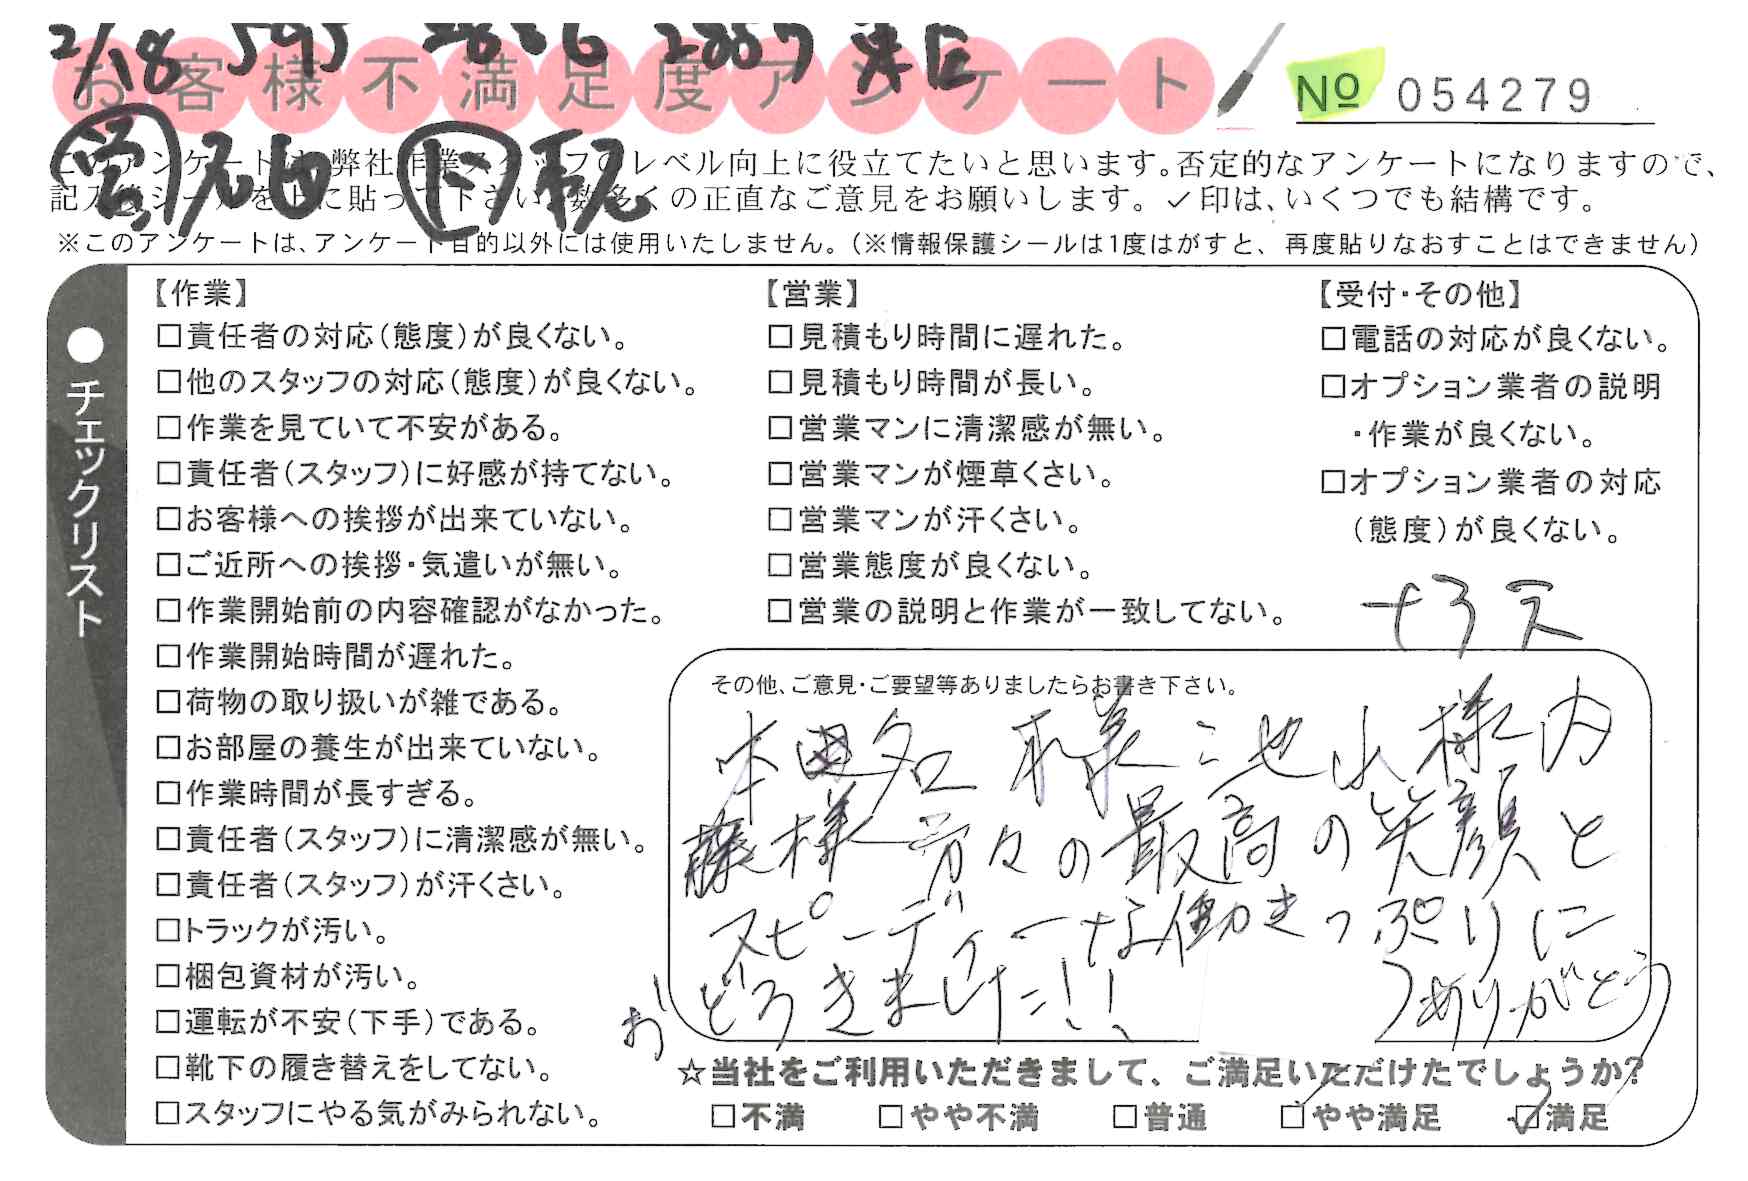 2/18
お客様不満足度アンケート
№ 054279
このアンケートは、弊社作業スタッフのレベル向上に役立てたいと思います。否定的なアンケートになりますので、
記入後シールを上に貼って下さい。数多くの正直なご意見をお願いします。✓印は、いくつでも結構です。
※このアンケートは、アンケート目的以外には使用いたしません。（※情報保護シールは1度はがすと、再度貼りなおすことはできません）
●チェックリスト
【作業】
□責任者の対応（態度）が良くない。
□他のスタッフの対応（態度）が良くない。
□作業を見ていて不安がある。
□責任者（スタッフ）に好感が持てない。
□お客様への挨拶が出来ていない。
□ご近所への挨拶・気遣いが無い。
□作業開始前の内容確認がなかった。
□作業開始時間が遅れた。
□荷物の取り扱いが雑である。
□お部屋の養生が出来ていない。
□作業時間が長すぎる。
□責任者（スタッフ）に清潔感が無い。
□責任者（スタッフ）が汗くさい。
□トラックが汚い。
□梱包資材が汚い。
□運転が不安（下手）である。
□靴下の履き替えをしてない。
□スタッフにやる気がみられない。
【営業】
□見積もり時間に遅れた。
□見積もり時間が長い。
□営業マンに清潔感が無い。
□営業マンが煙草くさい。
□営業マンが汗くさい。
□営業態度が良くない。
□営業の説明と作業が一致してない。
【受付・その他】
□電話の対応が良くない。
□オプション業者の説明
・作業が良くない。
□オプション業者の対応
（態度）が良くない。
その他、ご意見・ご要望等ありましたらお書き下さい。
本田名 様 池山様 内
藤様 方々の最高の笑顔と
スピーディーな働きっぷりに
おどろきました！！ ありがとう
☆当社をご利用いただきまして、ご満足いただけたでしょうか？
□不満 □やや不満 □普通 □やや満足 ☑満足